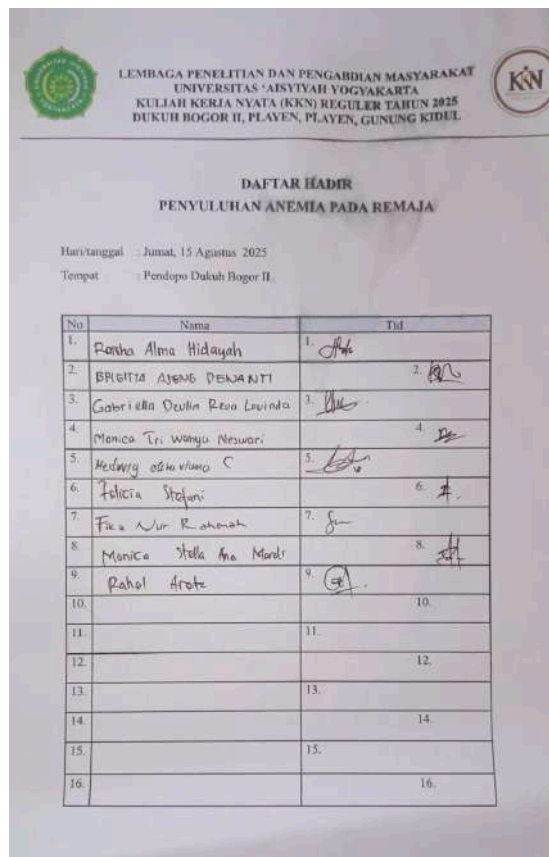 LEMBAGA PENELITIAN DAN PENGABDIAN MASYARAKAT
UNIVERSITAS 'AISYIYAH YOGYAKARTA
KULIAH KERJA NYATA (KKN) REGULER TAHUN 2025
DUKUH BOGOR II, PLAYEN, PLAYEN, GUNUNG KIDUL
KKN
DAFTAR HADIR
PENYULUHAN ANEMIA PADA REMAJA
Hari/tanggal : Jumat, 15 Agustus 2025
Tempat : Pendopo Dukuh Bogor II
No Nama Ttd
1. Alma Hidayah 1.
2. BRIGITTA AJENG DEWANTI 2.
3. Gabriella Devlin Reva Lovinda 3.
4. Monica Tri Wahyu Neswari 4.
5. Hedwig C 5.
6. Felicia Stefani 6.
7. Fika Nur Rahmah 7.
8. Monica Stella Ana 8.
9. Rahel 9.
10. 10.
11. 11.
12. 12.
13. 13.
14. 14.
15. 15.
16. 16.